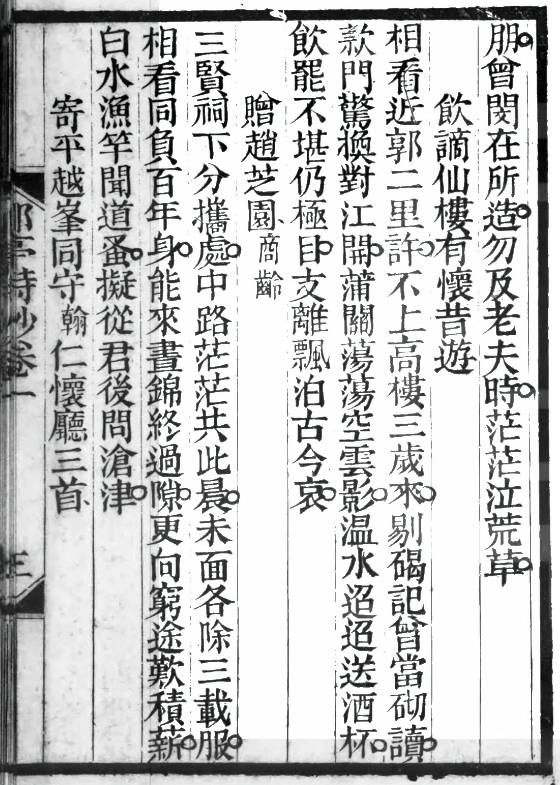 朋曾閔在所造勿及老夫時茫茫泣荒草
飲謫仙樓有懷昔遊
相看近郭二里許不上高樓三歲來剔碣記曾當砌讀
款門驚換對江開蒲關蕩蕩空雲影温水迢迢送酒杯
飲罷不堪仍極目支離飄泊古今哀
贈趙芝園商齡
三賢祠下分攜處中路茫茫共此晨未面各除三載服
相看同負百年身能來晝錦終過隙更向窮途歎積薪
白水漁竿聞道蚤擬從君後問滄津
寄平越峯同守翰仁懷廳三首
郘亭詩鈔卷一
三